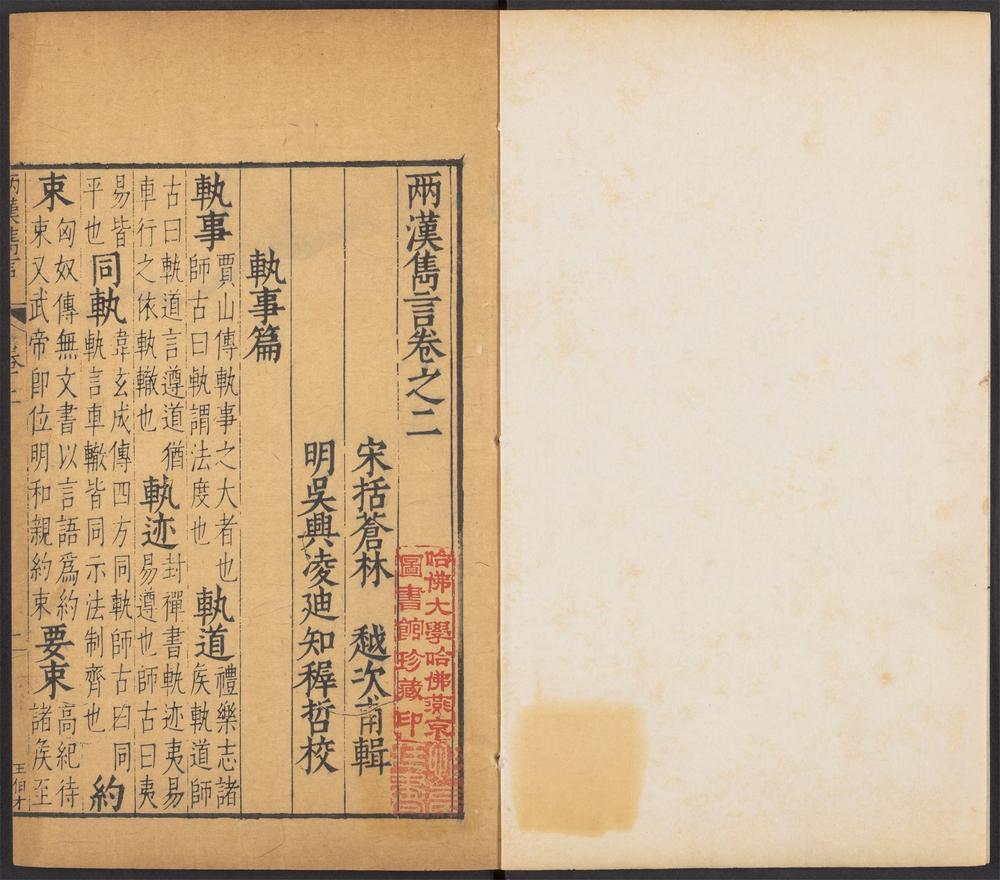 兩漢雋言卷之二
宋括蒼林　越次甫輯
明吳興凌迪知穉哲校
軌事篇
軌事
賈山傳軌事之大者也
師古曰軌謂法度也
軌道
禮樂志諸
矦軌道師
古曰軌道言遵道猶
車行之依軌轍也
軌迹
封禪書軌迹夷易
易遵也師古曰夷
易皆
平也
同軌
韋玄成傳四方同軌師古曰同
軌言車轍皆同示法制齊也
約
束
匈奴傳無文書以言語爲約
束又武帝卽位明和親約束
要束
高紀待
諸矦至
兩漢雋言
卷二
一
王伯才
哈佛大學哈佛燕京
圖書館珍藏印